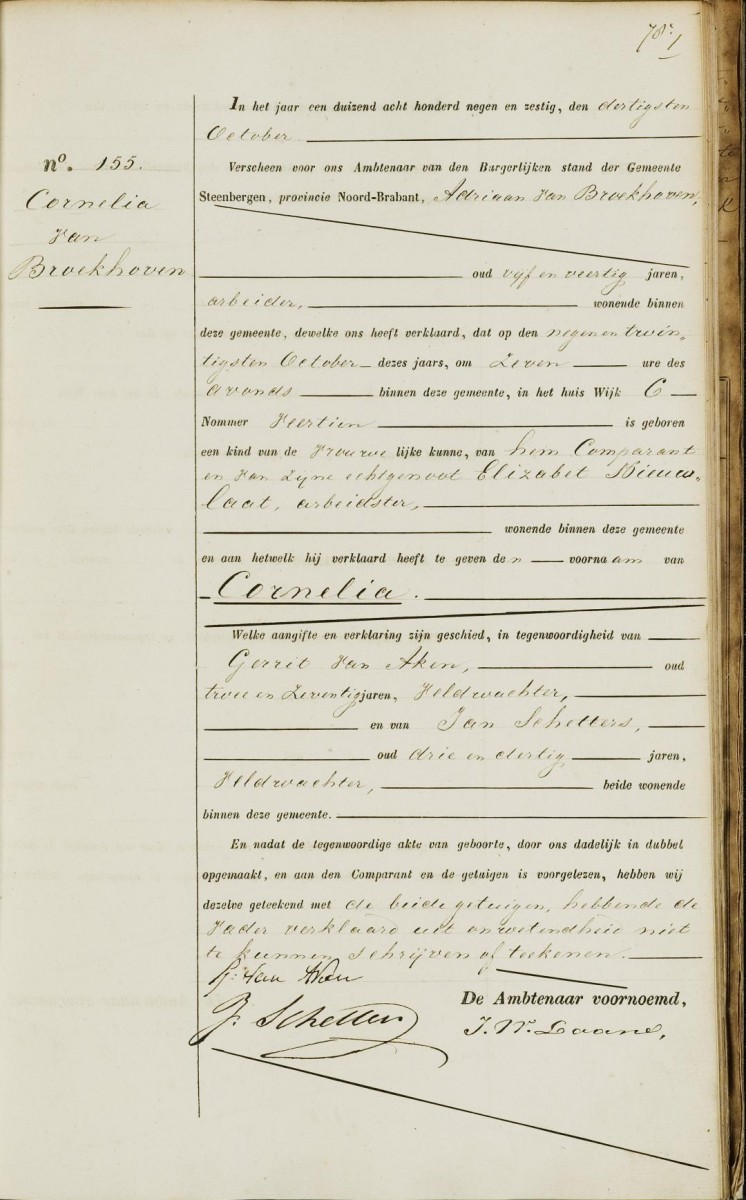 78.
nº. 155.
Cornelia
van
Broekhoven
In het jaar een duizend acht honderd negen en zestig, den dertigsten
October
Verscheen voor ons Ambtenaar van den Burgerlijken stand der Gemeente
Steenbergen, provincie Noord-Brabant, Adriaan van Broekhoven,
oud vijf en veertig jaren,
arbeider, wonende binnen
deze gemeente, dewelke ons heeft verklaard, dat op den negen en twin„
tigsten October dezes jaars, om Zeven ure des
avonds binnen deze gemeente, in het huis Wijk C
Nommer Veertien is geboren
een kind van de Vrouwe lijke kunne, van hem Comparant
en van zijne echtgenoot Elizabet Nieuw„
laat, arbeidster,
wonende binnen deze gemeente
en aan hetwelk hij verklaard heeft te geven de n voorna am van
Cornelia.
Welke aangifte en verklaring zijn geschied, in tegenwoordigheid van
Gerrit van Aken, oud
twee en Zeventig jaren, Veldwachter,
en van Jan Schetters,
oud drie en dertig jaren,
Veldwachter, beide wonende
binnen deze gemeente.
En nadat de tegenwoordige akte van geboorte, door ons dadelijk in dubbel
opgemaakt, en aan den Comparant en de getuigen is voorgelezen, hebben wij
dezelve geteekend met de beide getuigen, hebbende de
Vader verklaard uit onwetendheid niet
te kunnen schrijven of teekenen.
G: van Aken
J. Schetters
De Ambtenaar voornoemd,
J. W. Laane,